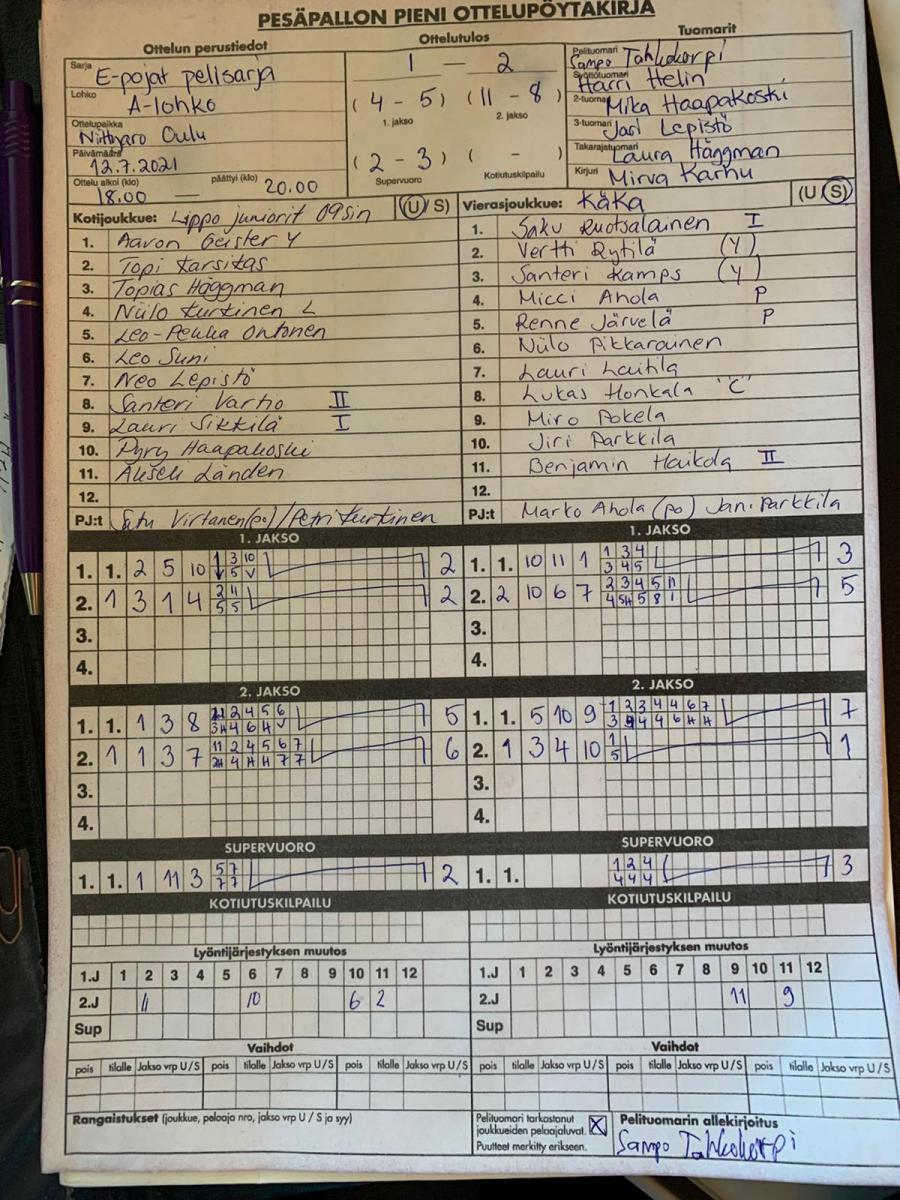 PESÄPALLON PIENI OTTELUPÖYTÄKIRJA
Ottelun perustiedot
Sarja E-pojat pelisarja
Lohko A-lohko
Ottelupaikka Oulu
Päivämäärä 12.7.2021
Ottelu alkoi (klo) 18.00 — päättyi (klo) 20.00
Ottelutulos
1 — 2
(4 - 5) (11 - 8)
1. jakso 2. jakso
(2 - 3) ( - )
Supervuoro Kotiutuskilpailu
Tuomarit
Pelituomari Sampo Tahkokorpi
Syöttötuomari Harri Helin
2-tuomari Mika Haapakoski
3-tuomari Jari Lepistö
Takarajatuomari Laura Häggman
Kirjuri Mirva Karhu
Kotijoukkue: Lippo juniorit 09sin (U S)
1. Aaron Geister Y
2. Topi Karsikas
3. Topias Häggman
4. Niilo Kurtinen L
5. Leo-Pekka Ontonen
6. Leo Suni
7. Neo Lepistö
8. Santeri Varho II
9. Lauri Sikkilä I
10. Pyry Haapakoski
11. Länden
12.
PJ:t Satu Virtanen (po) / Petri Kurtinen
Vierasjoukkue: KäKa (U S)
1. Saku Ruotsalainen I
2. Vertti Rytilä (Y)
3. Santeri Kamps (Y)
4. Micci Ahola P
5. Renne Järvelä P
6. Niilo Pikkarainen
7. Lauri Laitila
8. Lukas Honkala "C"
9. Miro Pokela
10. Jiri Parkkila
11. Benjamin Haikola II
12.
PJ:t Marko Ahola (po) Jani Parkkila
1. JAKSO
1. 1. 2 5 10 1 3 10 2
5
2. 1 3 1 4 2 11 2
5 5
3.
4.
1. JAKSO
1. 1. 10 11 1 1 3 4 3
3 4 5
2. 2 10 6 7 2 3 4 5 11 5
4 5H 5 8 1
3.
4.
2. JAKSO
1. 1. 1 3 8 2 4 5 6 5
4 6 H
2. 1 1 3 7 11 2 4 5 6 7 6
2H 4 H H 7 7
3.
4.
2. JAKSO
1. 1. 5 10 9 1 2 3 4 4 6 7 7
3 4 4 6 H H
2. 1 3 4 10 1 1
5
3.
4.
SUPERVUORO
1. 1. 1 11 3 5 7 2
7 7
SUPERVUORO
1. 1. 1 2 4 3
4 4 4
KOTIUTUSKILPAILU
KOTIUTUSKILPAILU
Lyöntijärjestyksen muutos
1.J 1 2 3 4 5 6 7 8 9 10 11 12
2.J 11 10 6 2
Sup
Lyöntijärjestyksen muutos
1.J 1 2 3 4 5 6 7 8 9 10 11 12
2.J 11 9
Sup
Vaihdot
pois tilalle Jakso vrp U / S pois tilalle Jakso vrp U / S pois tilalle Jakso vrp U / S
Vaihdot
pois tilalle Jakso vrp U / S pois tilalle Jakso vrp U / S pois tilalle Jakso vrp U / S
Rangaistukset (joukkue, pelaaja nro, jakso vrp U / S ja syy)
Pelituomari tarkastanut
joukkueiden pelaajaluvat.
Puutteet merkitty erikseen.
Pelituomarin allekirjoitus
Sampo Tahkokorpi